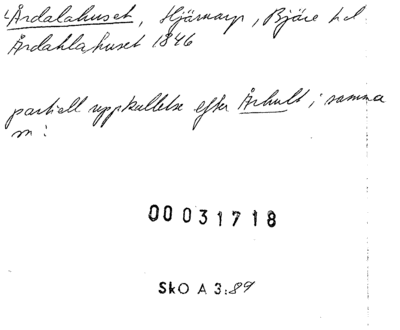 Årdalahuset, Hjärnarp, Bjäre hd
Årdahlahuset 1846
partiell uppkallelse efter Århult i samma
sn:
00031718
SkO A 3:89